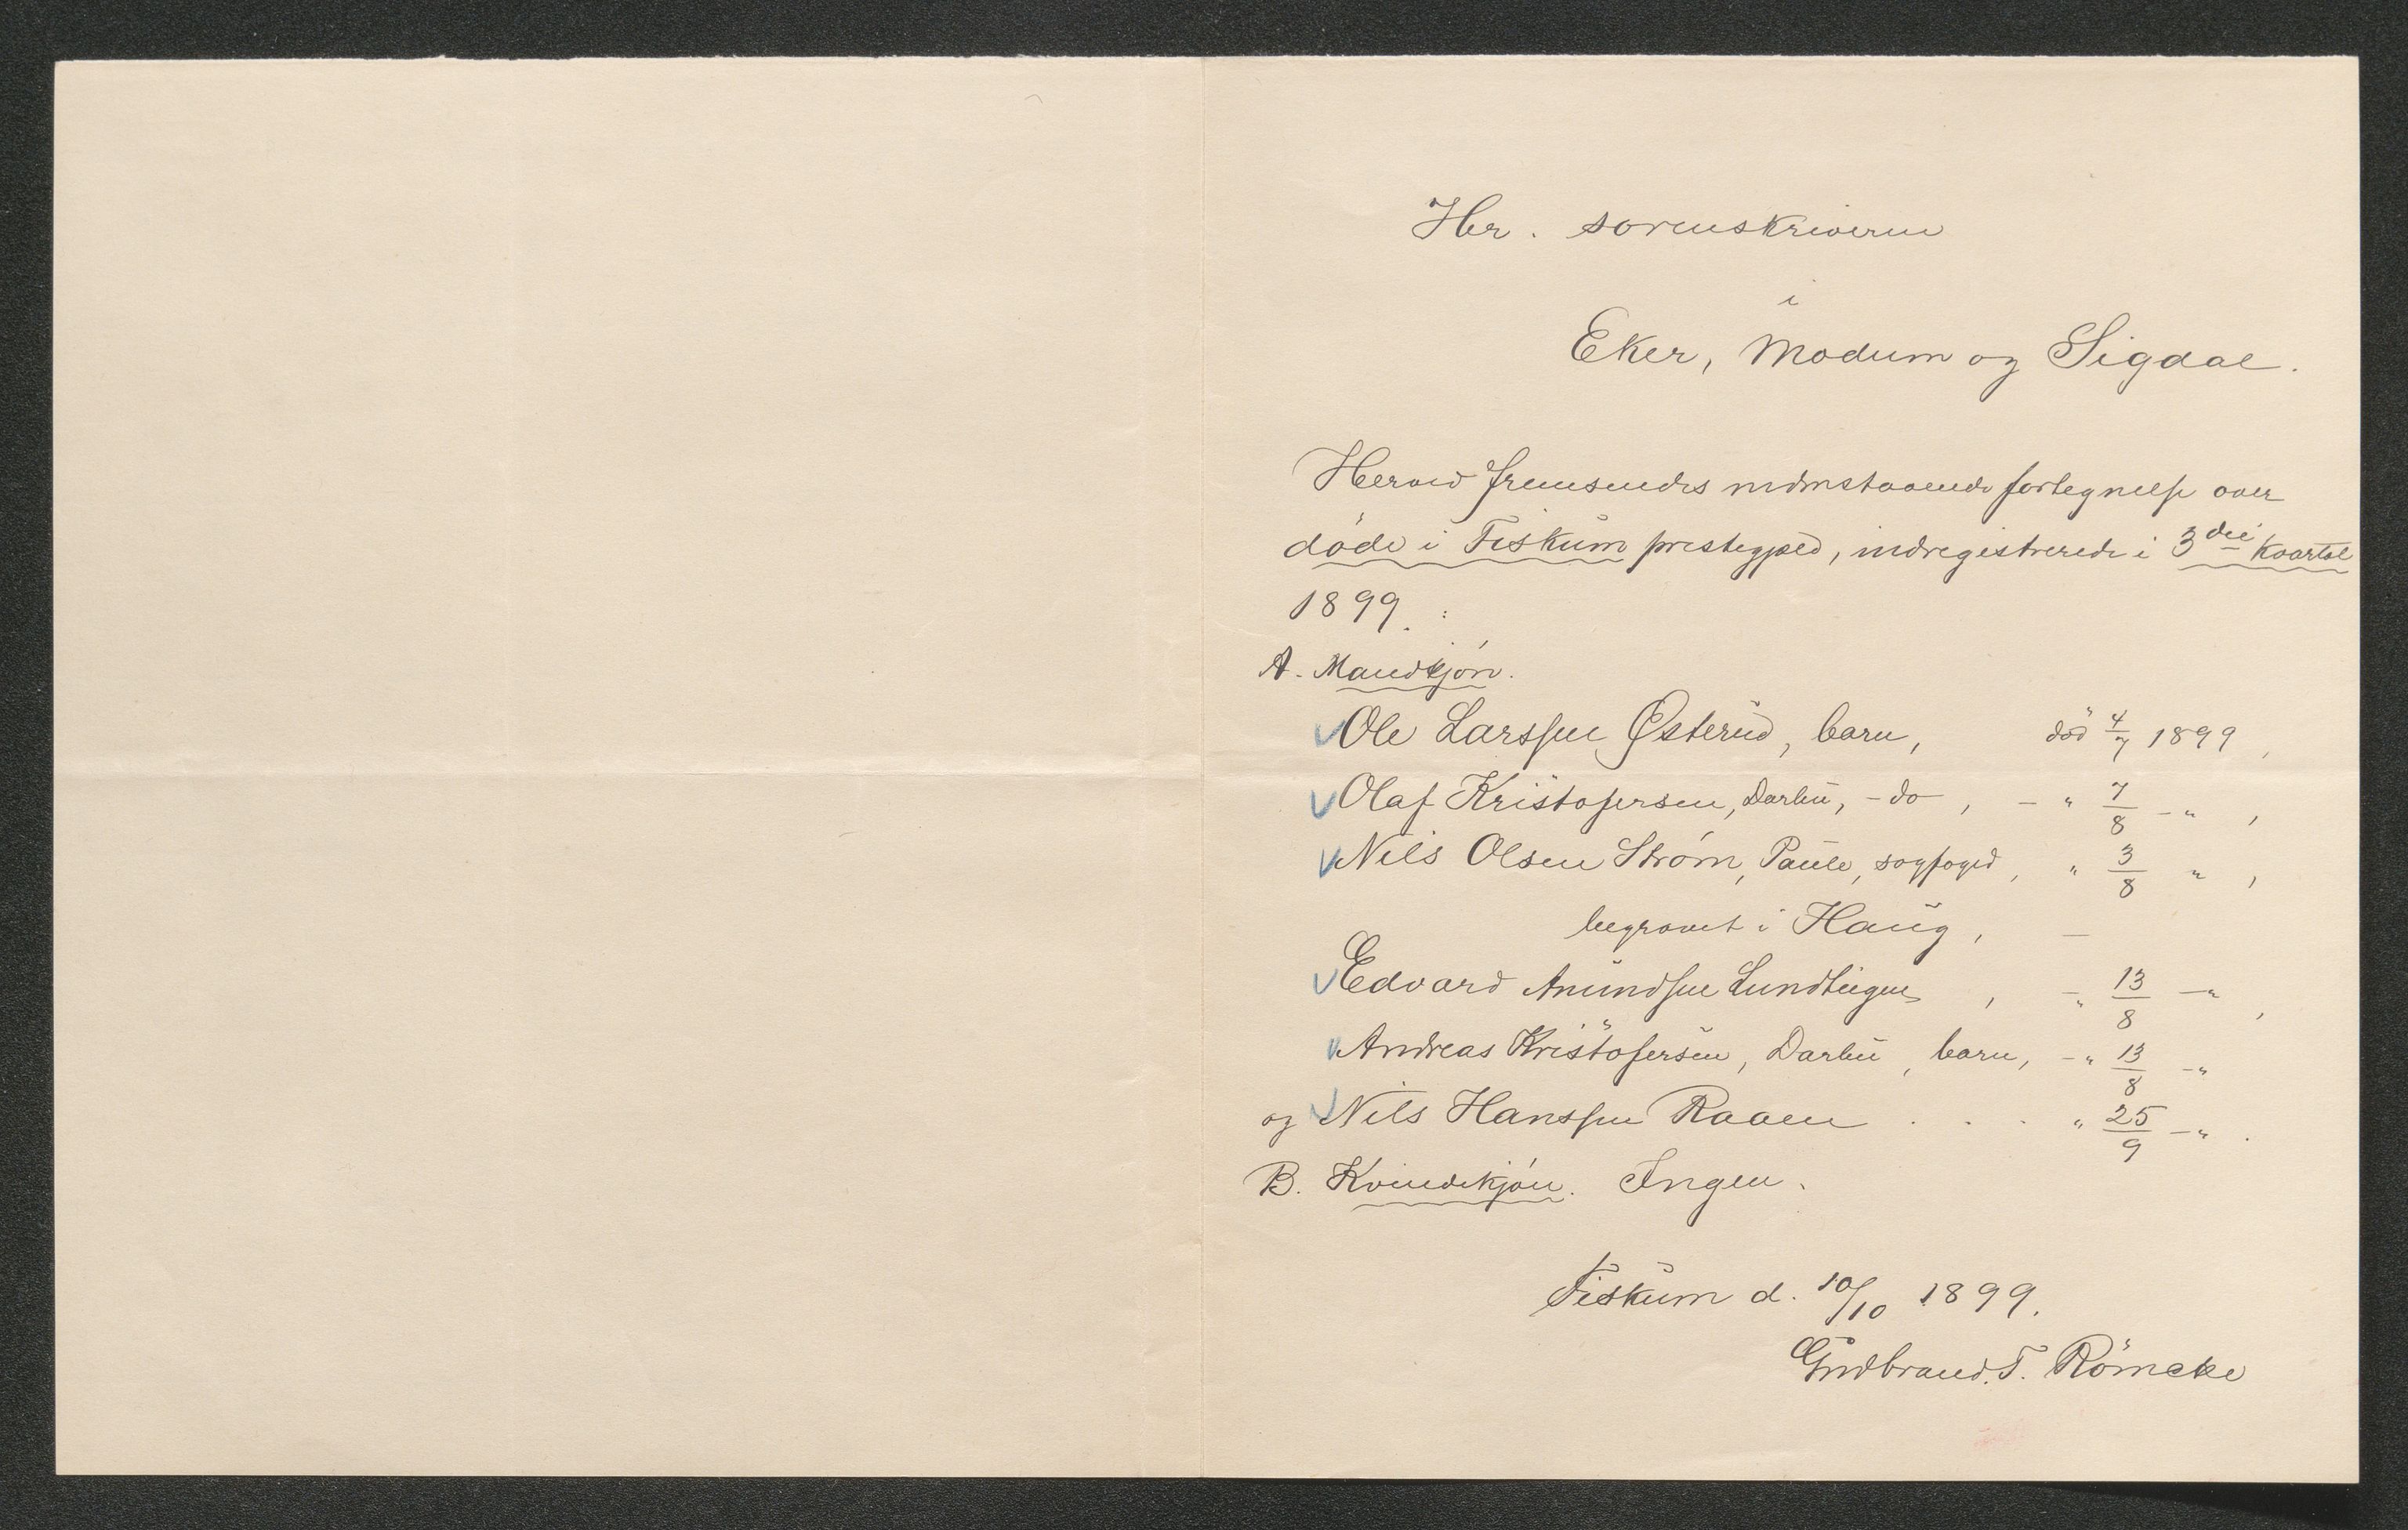 Hr. sorenskriveren
i
Eker, Modum og Sigdal.
Herved fremsendes nedenstaaende fortegnelse over
døde i Fiskum prestegjæld, indregistrerede i 3die kvartal
1899.:
A. Mandkjøn.
Ole Larssen Østerud, barn, død 4/7 1899,
Olaf Kristofersen, Darbu, - do -, - " 7/8 - " ,
Nils Olsen Strøm, Paule, sagfoged, " 3/8 " ,
begravet i Haug, -
Edvard Amundsen Lundteigen, - " 13/8 - " ,
Andreas Kristofersen, Darbu, barn, - " 13/8 - "
og Nils Hanssen Raaen . . . " 25/9 - " .
B. Kvindekjøn. Ingen.
Fiskum d. 10/10 1899.
Gudbrand. T. Römcke